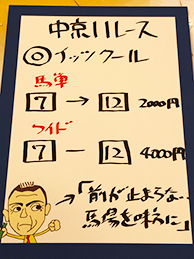 中京11レース
◎イッツクール
馬単
7 → 12 2000円
ワイド
7 — 12 4000円
→「前が止まらな‥
馬場を味方に」